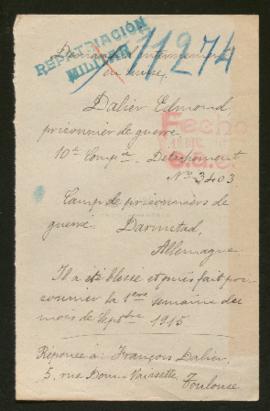 REPATRIACIÓN
MILITAR
11274
Demande d'internement
en Suisse.
Dalier Edmond
prisonnier de guerre
10e Compie. Détachement
No 3403
Fecha
Camp de prisonniers de
guerre. Darmstad,
Allemagne
Il a été blessé et après fait pri-
sonnier la 1ère semaine du
mois de Septbre 1915
Réponse à: François Dalier,
5, rue Dom-Vaissette, Toulouse